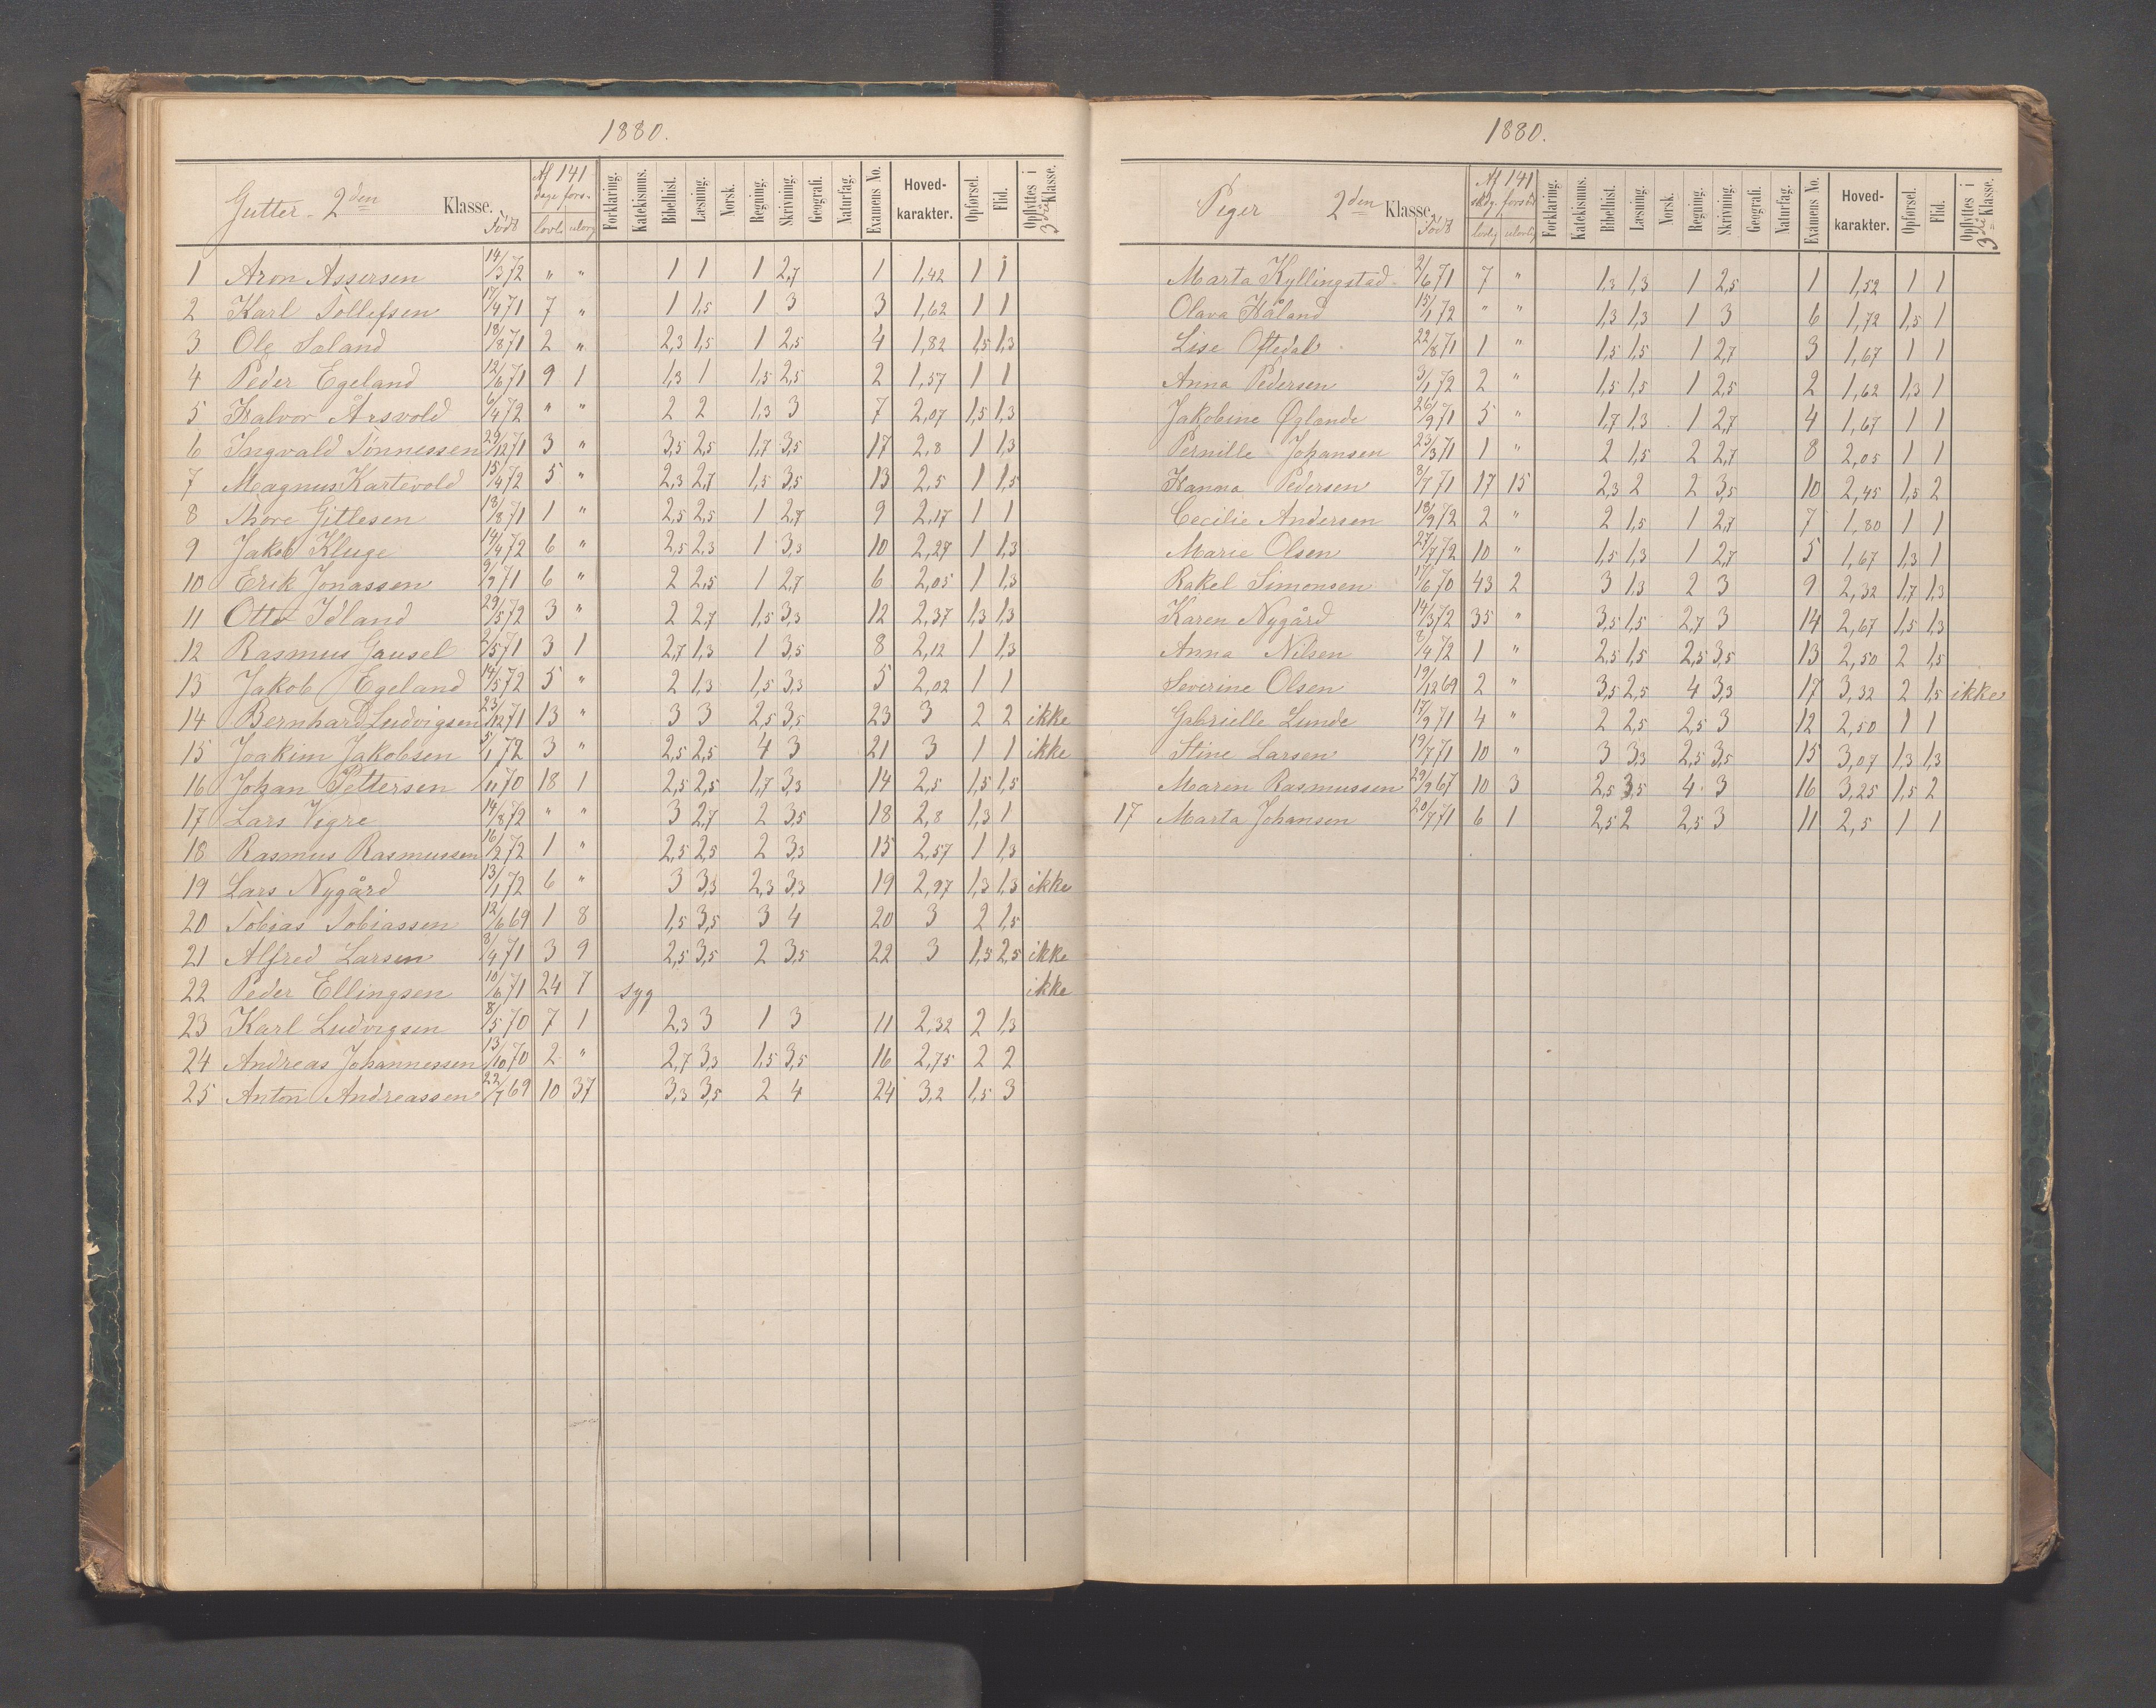 1880.
Gutter. 2den Klasse. Født Af 141 dage fors. lovl. ulovl. Forklaring. Katekismus. Bibelhist. Læsning. Norsk. Regning. Skrivning. Geografi. Naturfag. Examens No. Hoved-karakter. Opførsel. Flid. Opflyttes i 3die Klasse.
1 Aron Assersen 14/3 72 " " 1 1 1 2,7 1 1,42 1 1
2 Karl Tollefsen 17/4 71 7 " 1 1,5 1 3 3 1,62 1 1
3 Ole Soland 18/8 71 2 " 2,3 1,5 1 2,5 4 1,82 1,5 1,3
4 Peder Egeland 12/6 71 9 1 1,3 1 1,5 2,5 2 1,57 1 1
5 Halvor Arsvold 6/4 72 " " 2 2 1,3 3 7 2,07 1,5 1,3
6 Ingvald Tönnessen 29/12 71 3 " 3,5 2,5 1,7 3,5 17 2,8 1 1,3
7 Magnus Kartevold 15/4 72 5 " 2,3 2,7 1,5 3,5 13 2,5 1 1,5
8 Thore Gitlesen 13/8 71 1 " 2,5 2,5 1 2,7 9 2,17 1 1
9 Jakob Kluge 14/4 72 6 " 2,5 2,3 1 3,3 10 2,27 1 1,3
10 Erik Jonassen 9/9 71 6 " 2 2,5 1 2,7 6 2,05 1 1,3
11 Otto Idland 29/5 72 3 " 2 2,7 1,5 3,3 12 2,37 1,3 1,3
12 Rasmus Gausel 2/5 71 3 1 2,7 1,3 1 3,5 8 2,12 1 1,3
13 Jakob Egeland 14/5 72 5 " 2 1,3 1,5 3,3 5 2,02 1 1
14 Bernhard Ludvigsen 23/12 71 13 " 3 3 2,5 3,5 23 3 2 2 ikke
15 Joakim Jakobsen 5/1 72 3 " 2,5 2,5 4 3 21 3 1 1 ikke
16 Johan Pettersen 1/11 70 18 1 2,5 2,5 1,7 3,3 14 2,5 1,5 1,5
17 Lars Vigre 14/8 72 " " 3 2,7 2 3,5 18 2,8 1,3 1
18 Rasmus Rasmussen 16/2 72 1 " 2,5 2,5 2 3,3 15 2,57 1 1,3
19 Lars Nygård 13/1 72 6 " 3 3,3 2,3 3,3 19 2,97 1,3 1,3 ikke
20 Tobias Tobiassen 12/6 69 1 8 1,5 3,5 3 4 20 3 2 1,5
21 Alfred Larsen 8/4 71 3 9 2,5 3,5 2 3,5 22 3 1,5 2,5 ikke
22 Peder Ellingsen 10/6 71 24 7 syg ikke
23 Karl Ludvigsen 8/5 70 7 1 2,3 3 1 3 11 2,32 2 1,3
24 Andreas Johannessen 13/10 70 2 " 2,7 3,3 1,5 3,5 16 2,75 2 2
25 Anton Andreassen 22/7 69 10 37 3,3 3,5 2 4 24 3,2 1,5 3
1880.
Piger 2den Klasse. Født Af 141 skdg. forsömt lovlig ulovlig Forklaring. Katekismus. Bibelhist. Læsning. Norsk. Regning. Skrivning. Geografi. Naturfag. Examens No. Hoved-karakter. Opførsel. Flid. Opflyttes i 3die Klasse.
Marta Kyllingstad 2/6 71 7 " 1,3 1,3 1 2,5 1 1,52 1 1
Olava Håland 15/1 72 " " 1,3 1,3 1 3 6 1,72 1,5 1
Lise Oftedal 22/8 71 1 " 1,5 1,5 1 2,7 3 1,67 1 1
Anna Pedersen 3/1 72 2 " 1,5 1,5 1 2,5 2 1,62 1,3 1
Jakobine Øglænde 26/9 71 5 " 1,7 1,3 1 2,7 4 1,67 1 1
Pernille Johansen 23/3 71 1 " 2 1,5 2 2,7 8 2,05 1 1
Hanna Pedersen 8/7 71 17 15 2,3 2 2 3,5 10 2,45 1,5 2
Cecilie Andersen 18/9 72 2 " 2 1,5 1 2,7 7 1,80 1 1
Marie Olsen 27/7 72 10 " 1,5 1,3 1 2,7 5 1,67 1,3 1
Rakel Simonsen 17/6 70 43 2 3 1,3 2 3 9 2,32 1,7 1,3
Karen Nygård 14/3 72 35 " 3,5 1,5 2,7 3 14 2,67 1,5 1,3
Anna Nilsen 8/4 72 1 " 2,5 1,5 2,5 3,5 13 2,50 2 1,5
Severine Olsen 19/12 69 2 " 3,5 2,5 4 3,3 17 3,32 2 1,5 ikke
Gabrielle Lunde 17/9 71 4 " 2 2,5 2,5 3 12 2,50 1 1
Stine Larsen 19/7 71 10 " 3 3,3 2,5 3,5 15 3,07 1,3 1,3
Maren Rasmussen 29/9 67 10 3 2,5 3,5 4 3 16 3,25 1,5 2
17 Marta Johansen 20/7 71 6 1 2,5 2 2,5 3 11 2,5 1 1